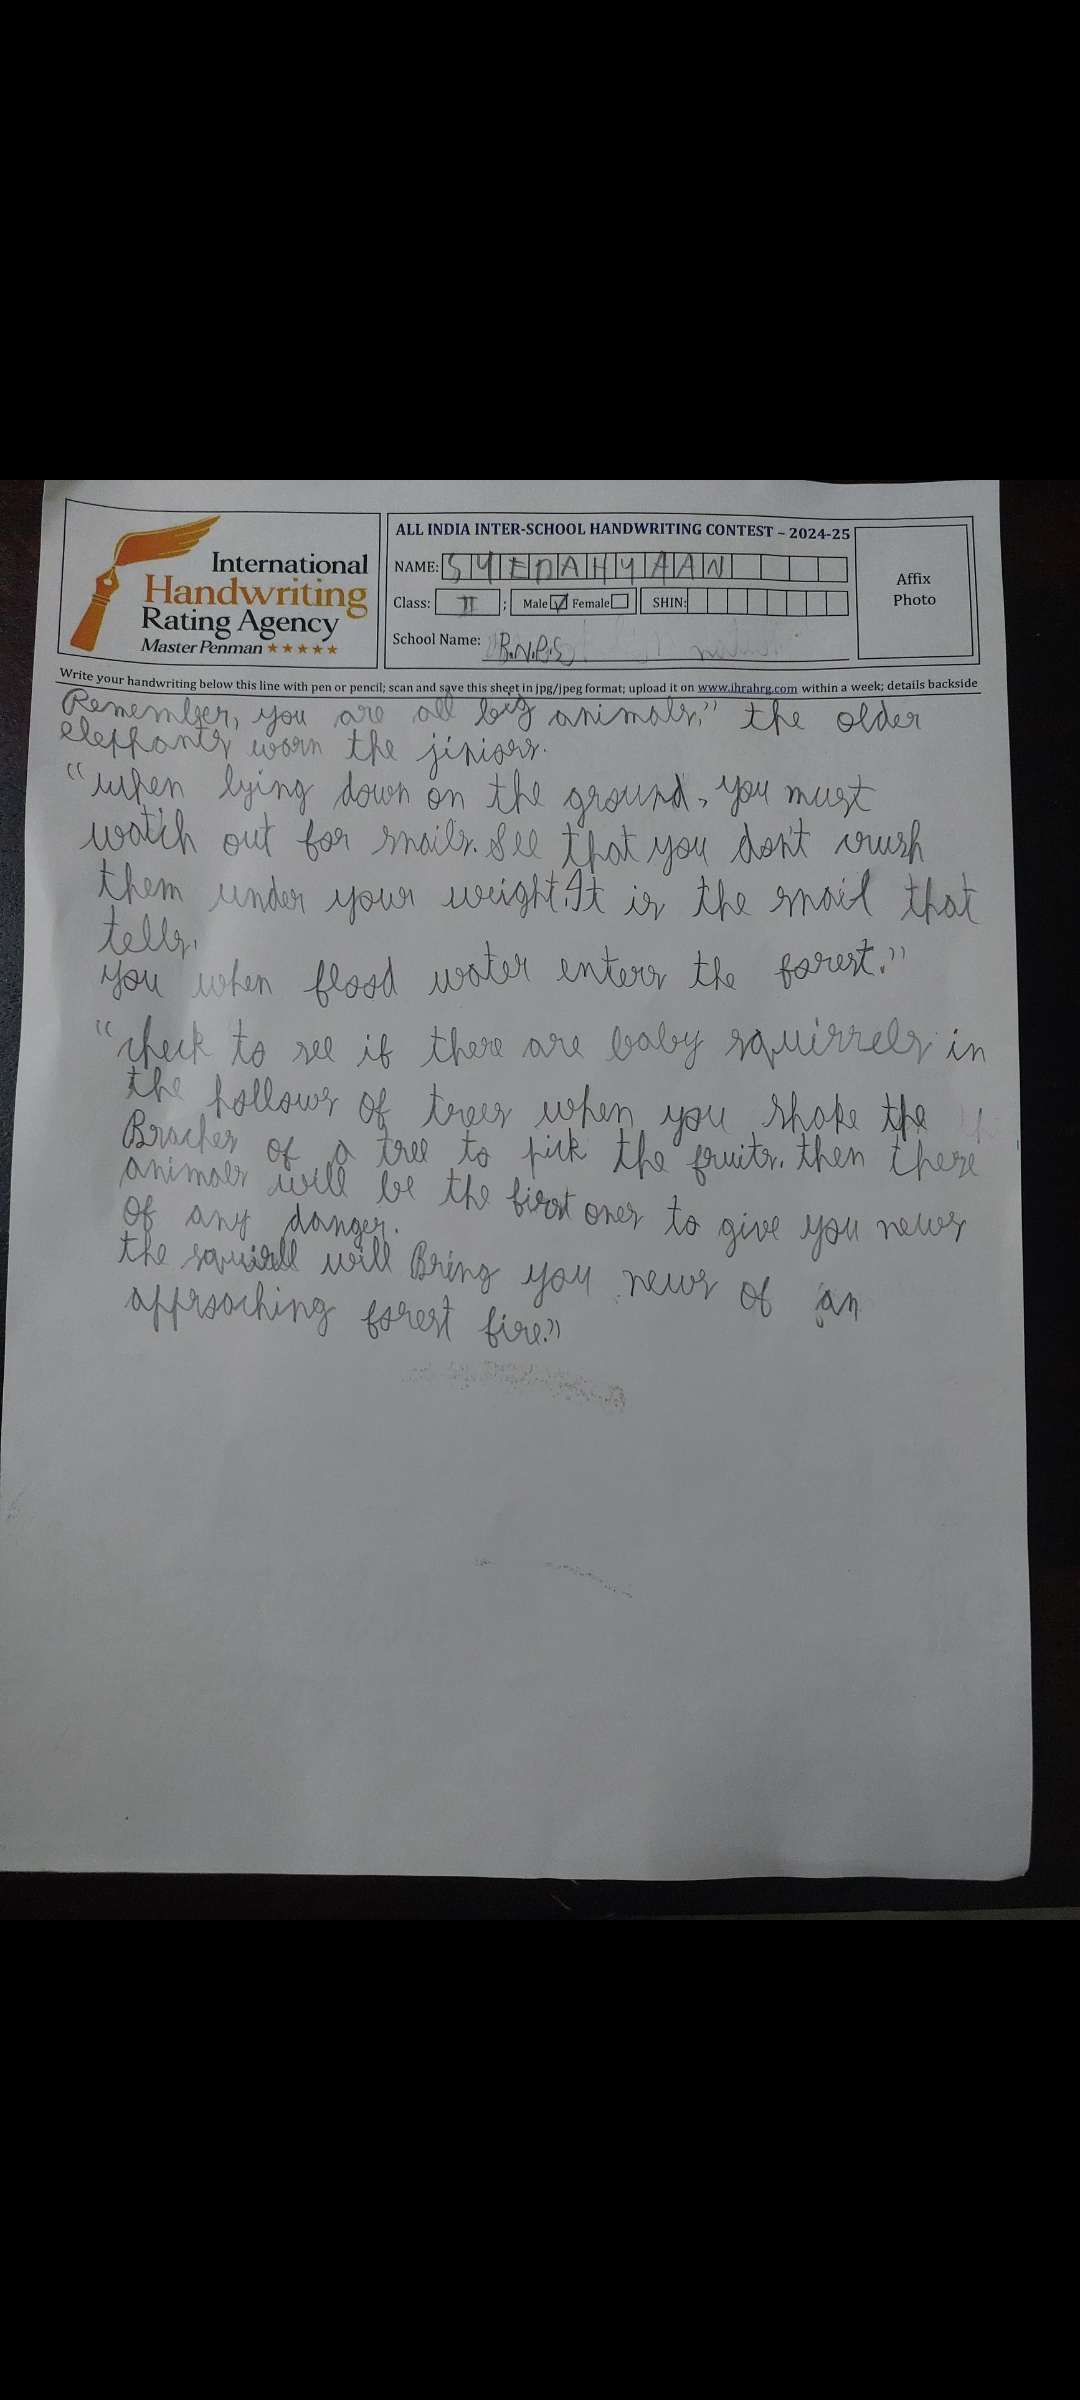 International
Handwriting
Rating Agency
Master Penman ★★★★★
ALL INDIA INTER-SCHOOL HANDWRITING CONTEST – 2024-25
NAME: SYEDAHYAAN
Class: II ; Male ☑ Female ☐ SHIN:
School Name: B.N.P.S
Affix
Photo
Write your handwriting below this line with pen or pencil; scan and save this sheet in jpg/jpeg format; upload it on www.ihrahrg.com within a week; details backside
Remember, you are all big animals," the older
elephants warn the jiniors.
"when lying down on the ground, you must
watch out for snails. See that you don't crush
them under your weight. It is the snail that
tells.
you when flood water enters the forest."
"check to see if there are baby squirrels in
the hollows of trees when you shake the
Braches of a tree to pick the fruits. then these
animals will be the first ones to give you news
of any danger.
the squirell will Bring you news of an
approaching forest fire."